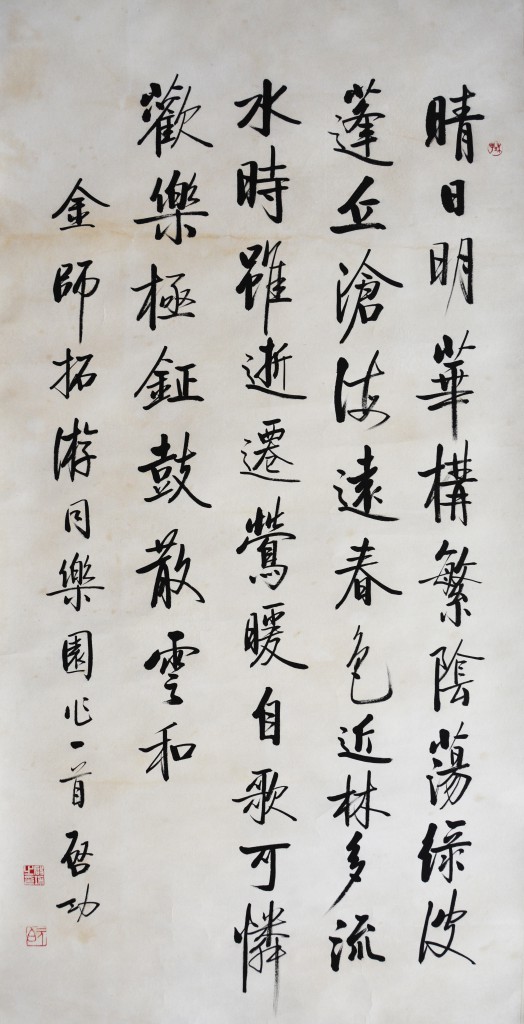 晴日明華構繁陰蕩綠波
蓬丘滄海遠春色近林多流
水時雖逝遷鶯暖自歌可憐
歡樂極鉦鼓散雲和
金師拓游同樂園作一首 啓功